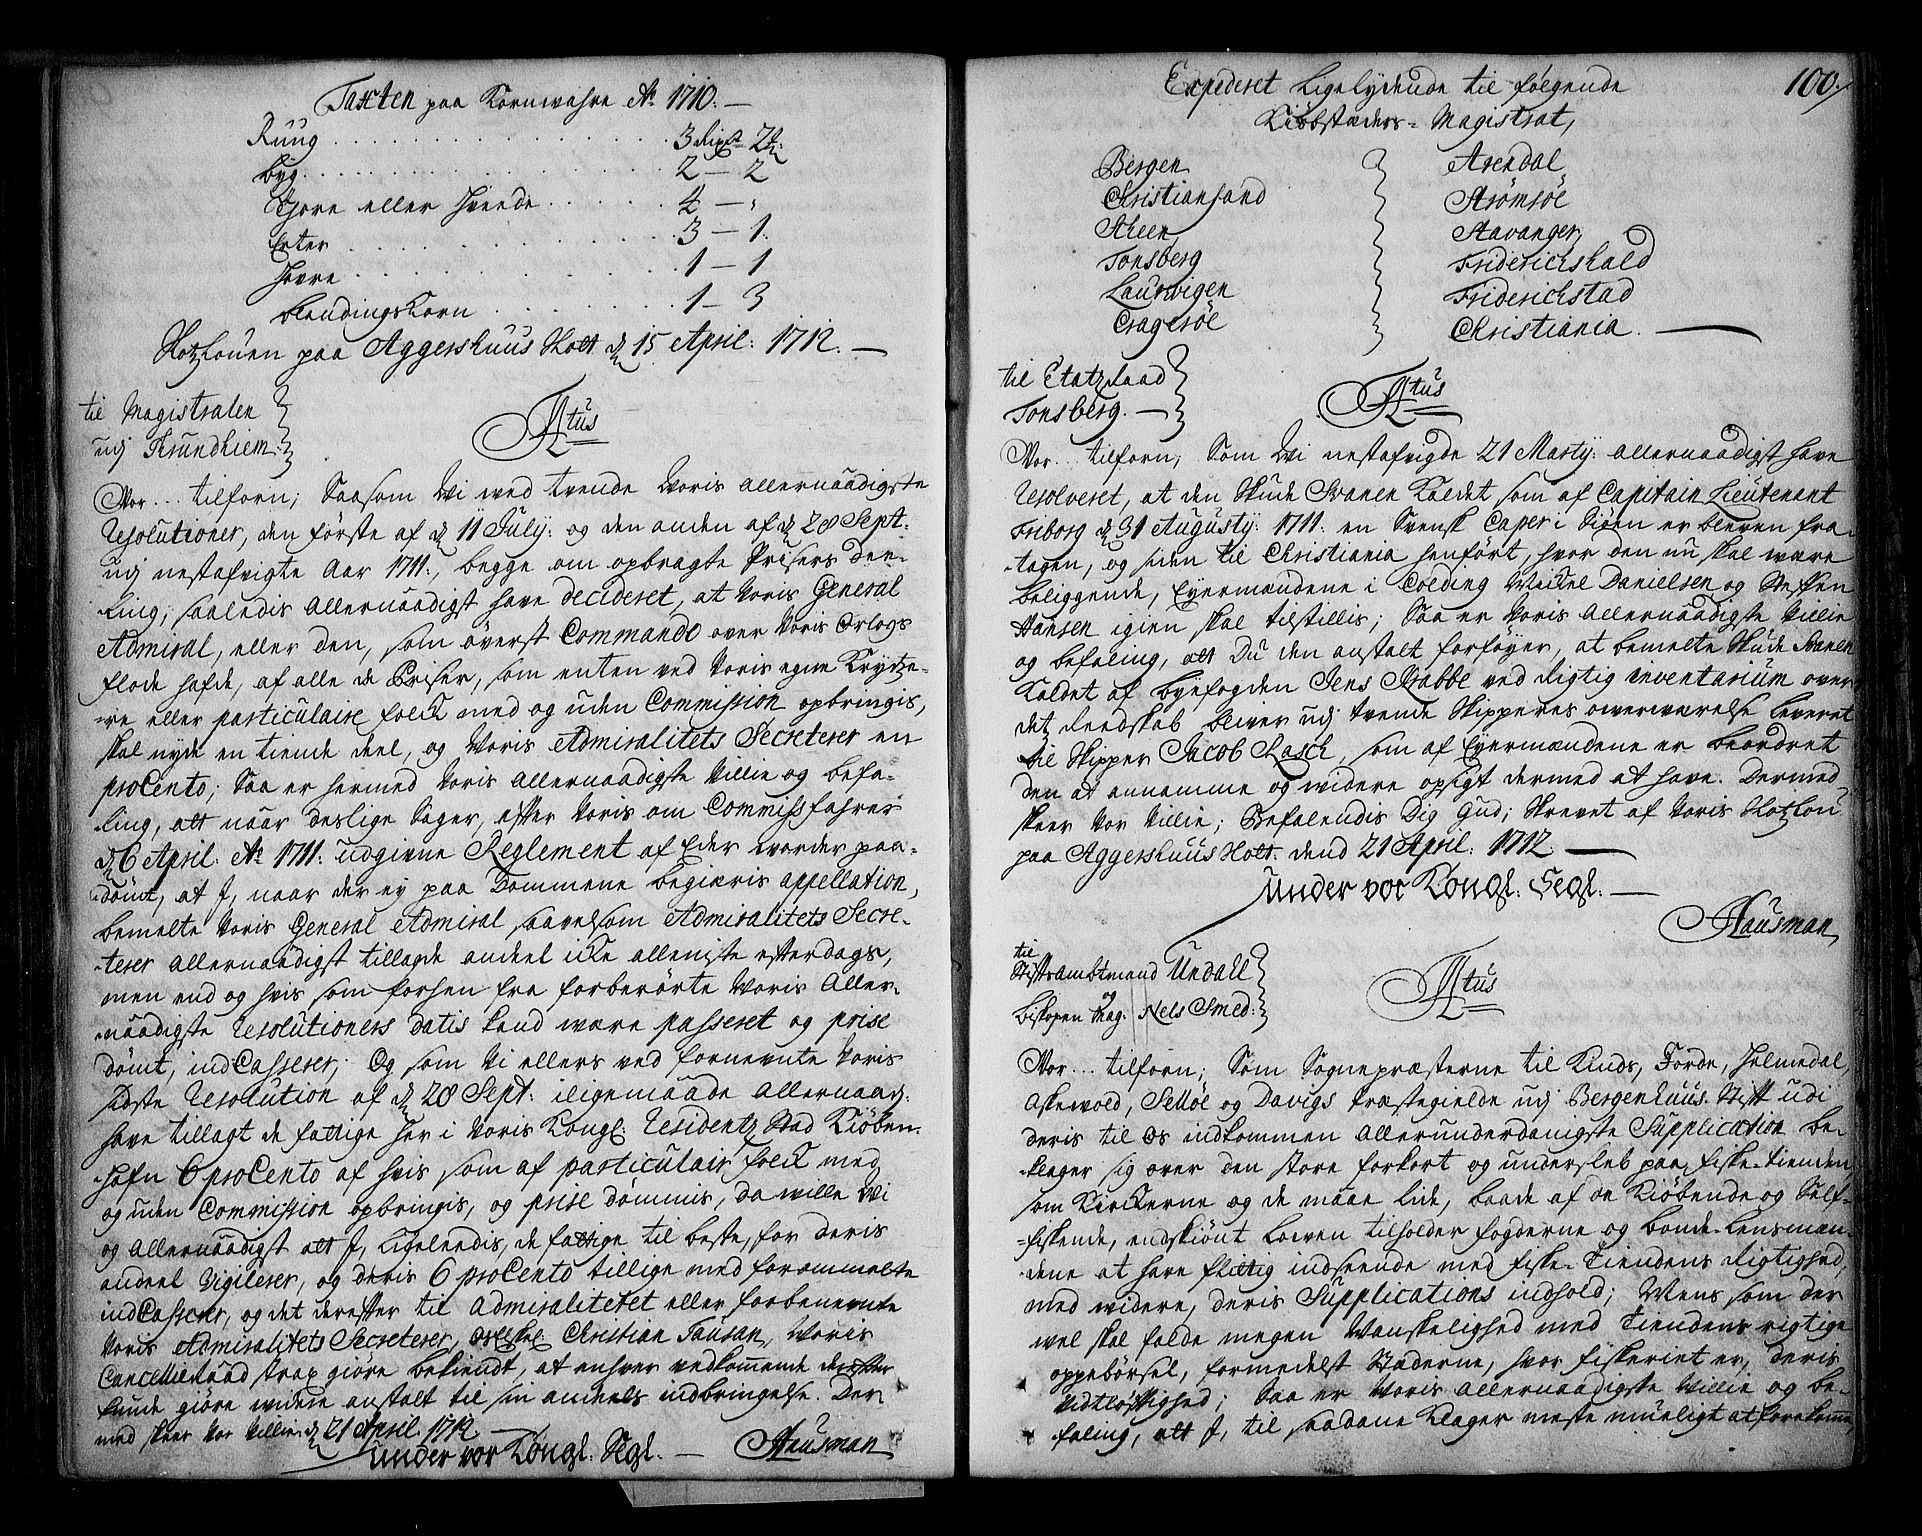 Taxten paa Kornwahre Ao 1710. —
Ruug . . . . . . . . . . 3 Rixdr 2
Byg . . . . . . . . . . 2 — 2
Gjore eller Hvede . . . . . 4 — "
Erter . . . . . . . . . . 3 — 1.
Havre . . . . . . . . . . 1 — 1
Blandings Korn . . . . . . 1 — 3
Slotzlouen paa Aggershuus Slott d 15 April: 1712. —
til Magistraten
udj Trundhiem.
F4tus
Vor... tilforn; Saasom Wi med tvende Voris allernaadigste
Resolutioner, den første af d 11 July: og den anden af d 28 Sept:
udj nestafvigte Aar 1711., begge om opbragte Prisers dee-
-ling, saaledis allernaadigst have decideret, at Voris General
Admiral, eller den, som øverst Commando over Voris Orlogs
flode hafde, af alle de Priser, som enten ved Voris egne Krydze-
-re eller particulaire folck med og uden Commission opbringis,
skal nyde en tiende deel, og Voris Admiralitets Secreterer en
proCento; Saa er hermed Voris allernaadigste Villie og befa-
-ling, att naar deslige Sager, efter Voris om Commissfahrer
d 6 April: Ao 1711. udgivne Reglement af Eder worder paa-
-dømt, at I, naar der ey paa Dommene begiæris appellation,
bemelte Voris General Admiral saavelsom Admiralitets Secre-
-terer allernaadigst tillagde andeel icke alleniste efterdags,
men end og hvis som forhen fra forberørte Voris Aller-
-naadigste Resolutioners datis kand være passeret og prise
dømt, indCasserer; Og som Vi ellers ved fornevnte Voris
sidste Resolution af d 28 Sept: iligemaade allernaad:
have tillagt de fattige her i Voris Kongl: Residentz Stad Kiøben-
-hafn 6 proCento af hvis som af particulair folck med
og uden Commission opbringis, og prise dømmis, da wille Wi
og allernaadigst att I, ligeleedis, de fattige til beste, for deris
andeel Vigilerer, og deris 6 proCento tillige med forommelte
indCasserer, og det derefter til Admiralitetet eller forbenevnte
Voris Admiralitets Secreterer, Christian Tausan, Voris
CancellieRaad strax giøre bekiendt, at enhver vedkommende derefter
kunde giøre widere anstalt til sin andeels indbringelse. Der-
med skeer Vor Villie. d 21 April 1712. —
under vor Kongl: Segl. — FHausman
Expederet Ligelydende til følgende 100.
Kiøbstæders Magistrat,
Bergen Arendal
Christiansand Strømsøe
Skeen Stavanger
Tonsberg Friderichshald
Laurwigen Friderichstad
Cragerøe Christiania. —
til EtatzRaad
Tonsberg. —
F4tus
Vor... tilforn; Som Wi nestafvigde 21 Martij: allernaadigst have
Resolveret, at den Skude Svanen Kaldet, som af Capitain Lieutenant
Friborg d 31 Augustij: 1711. en Svensk Caper i Siøen er bleven fra-
-tagen, og siden til Christiania henført, hvor den nu skal være
beliggende, Eyermændene i Colding Mickel Danielsen og Steffen
Hansen igien skal tilstillis; Saa er Voris allernaadigste Villie
og befaling, att Du den anstalt forføyer, at bemelte Skude Svanen
kaldet af byefogden Jens Krabbe ved Rigtig inventarium over
det Reedskab bliver udj tvende Skipperes overværelse leveret
til Skipper Jacob Rasch, som af Eyermændene er beordret
den at annamme og widere opsigt dermed at have. Dermed
skeer Vor Villie; Befalendis Dig Gud; Skrevet af Voris Slotzlou
paa Aggershuus Slott. dend 21 April: 1712. —
Under vor Kongl: Segl. —
FHausman
til
Stiftsambtmand Undall
og
Biskopen Mag. Nels Smed:
F4tus
Vor... tilforn; Som Sognepræsterne til Kinds, Førde, Holmedal,
Askevold, Selløe og Davigs Præstegielde udj Bergenhuus Stift udi
deris til Os indkommen allerunderdanigste Supplication be-
-klager sig over den store forkort og underslæb paa fiske-tienden
som Kirckerne og de maae lide, baade af de Kiøbende og Self-
-fiskende, endskiønt Loven tilholder fogderne og bonde-Lensmæn-
dene at have flittig indseende med fiske-Tiendens Rigtighed,
med widere, deris Supplications indhold; Mens som der
wel skal falde megen Vanskelighed med Tiendens rigtige
oppebørsel, formedelst Stæderne, hvor fiskeriet er, deris
Vidtløftighed; Saa er Voris allernaadigste Villie og be-
faling, att I, til, saadane Klager meste mueligt at forekomme,